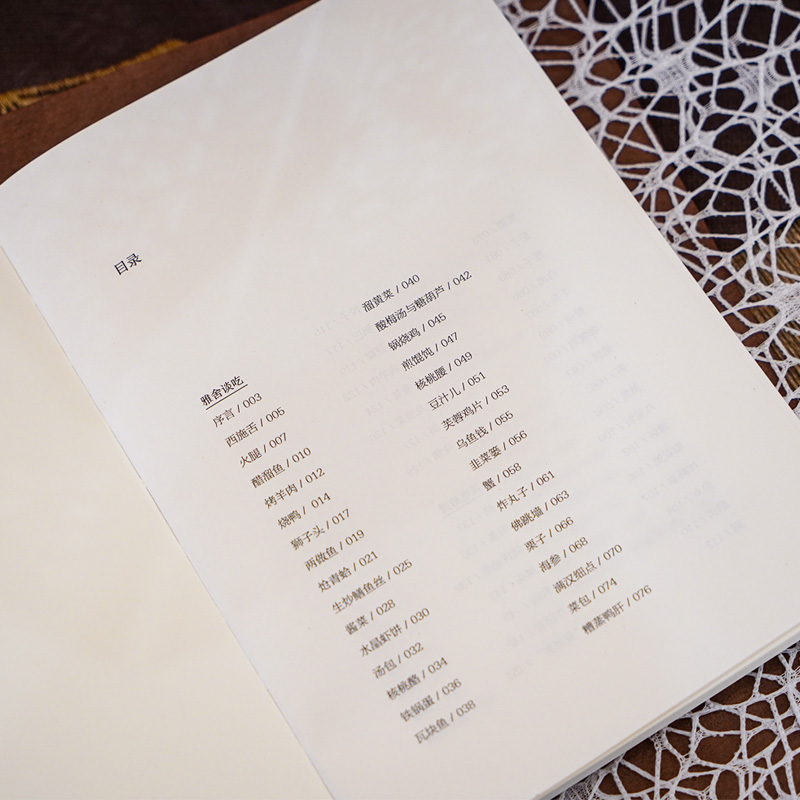 目录
雅舍谈吃
序言 / 003
西施舌 / 005
火腿 / 007
醋溜鱼 / 010
烤羊肉 / 012
烧鸭 / 014
狮子头 / 017
两做鱼 / 019
炝青蛤 / 021
生炒鳝鱼丝 / 025
酱菜 / 028
水晶虾饼 / 030
汤包 / 032
核桃酪 / 034
铁锅蛋 / 036
瓦块鱼 / 038
溜黄菜 / 040
酸梅汤与糖葫芦 / 042
锅烧鸡 / 045
煎馄饨 / 047
核桃腰 / 049
豆汁儿 / 051
芙蓉鸡片 / 053
乌鱼钱 / 055
韭菜篓 / 056
蟹 / 058
炸丸子 / 061
佛跳墙 / 063
栗子 / 066
海参 / 068
满汉细点 / 070
菜包 / 074
糟蒸鸭肝 / 076